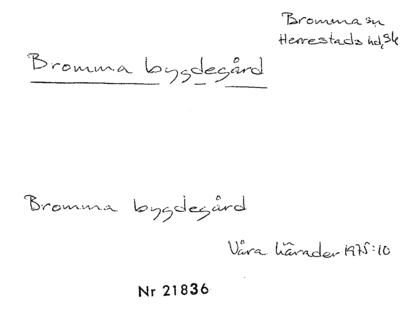 Bromma sn
Herrestads hd, Sk
Bromma bygdegård
Bromma bygdegård
Våra härader 1975:10
Nr 21836